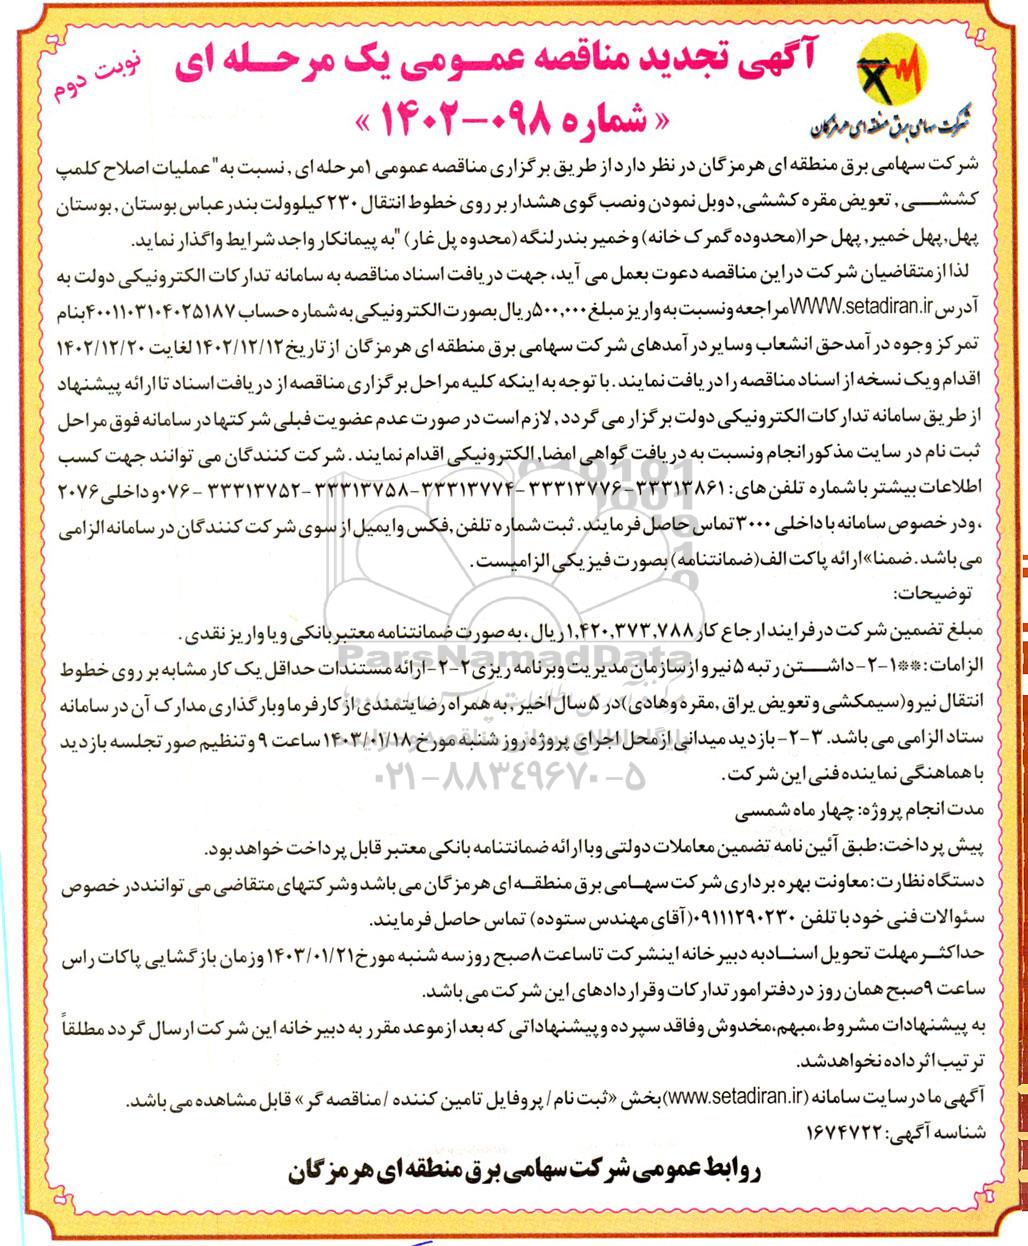 آگهی تجدید مناقصه عمومی یک مرحله ای
نوبت دوم
« شماره ۰۹۸-۱۴۰۲ »
شرکت سهامی برق منطقه ای هرمزگان
شرکت سهامی برق منطقه ای هرمزگان در نظر دارد از طریق برگزاری مناقصه عمومی ۱مرحله ای , نسبت به "عملیات اصلاح کلمپ
کششی , تعویض مقره کششی, دوبل نمودن ونصب گوی هشدار بر روی خطوط انتقال ۲۳۰ کیلوولت بندرعباس بوستان , بوستان
پهل, پهل خمیر, پهل حرا(محدوده گمرک خانه) وخمیر بندرلنگه (محدوه پل غار) "به پیمانکار واجد شرایط واگذار نماید.
لذا از متقاضیان شرکت دراین مناقصه دعوت بعمل می آید، جهت دریافت اسناد مناقصه به سامانه تدارکات الکترونیکی دولت به
آدرس WWW.setadiran.ir مراجعه ونسبت به واریز مبلغ ۵۰۰,۰۰۰ریال بصورت الکترونیکی به شماره حساب ۴۰۰۱۱۰۳۱۰۴۰۲۵۱۸۷بنام
تمرکز وجوه درآمدحق انشعاب وسایردرآمدهای شرکت سهامی برق منطقه ای هرمزگان از تاریخ ۱۴۰۲/۱۲/۱۲ لغایت ۱۴۰۲/۱۲/۲۰
اقدام ویک نسخه از اسناد مناقصه را دریافت نمایند . با توجه به اینکه کلیه مراحل برگزاری مناقصه از دریافت اسناد تا ارائه پیشنهاد
از طریق سامانه تدارکات الکترونیکی دولت برگزار می گردد , لازم است در صورت عدم عضویت قبلی شرکتها در سامانه فوق مراحل
ثبت نام در سایت مذکورانجام ونسبت به دریافت گواهی امضا, الکترونیکی اقدام نمایند . شرکت کنندگان می توانند جهت کسب
اطلاعات بیشتر با شماره تلفن های : ۳۳۳۱۳۸۶۱-۳۳۳۱۳۷۷۶-۳۳۳۱۳۷۷۴-۳۳۳۱۳۷۵۸-۳۳۳۱۳۷۵۲ -۰۷۶ وداخلی ۲۰۷۶
،ودر خصوص سامانه با داخلی ۳۰۰۰ تماس حاصل فرمایند. ثبت شماره تلفن ,فکس وایمیل از سوی شرکت کنندگان در سامانه الزامی
می باشد. ضمنا»ارائه پاکت الف(ضمانتنامه) بصورت فیزیکی الزامیست .
توضیحات:
مبلغ تضمین شرکت درفرایند ارجاع کار ۱,۴۲۰,۳۷۳,۷۸۸ریال ، به صورت ضمانتنامه معتبربانکی و یا واریز نقدی .
الزامات : **۱-۲- داشتن رتبه ۵ نیرو از سازمان مدیریت وبرنامه ریزی ۲-۲-ارائه مستندات حداقل یک کار مشابه بر روی خطوط
انتقال نیرو(سیمکشی و تعویض یراق , مقره وهادی) در ۵ سال اخیر , به همراه رضایتمندی از کارفرما وبارگذاری مدارک آن در سامانه
ستاد الزامی می باشد. ۳-۲- بازدید میدانی ازمحل اجرای پروژه روز شنبه مورخ ۱۴۰۳/۰۱/۱۸ ساعت ۹ و تنظیم صورتجلسه بازدید
با هماهنگی نماینده فنی این شرکت .
مدت انجام پروژه: چهار ماه شمسی
پیش پرداخت: طبق آئین نامه تضمین معاملات دولتی وبا ارائه ضمانتنامه بانکی معتبر قابل پرداخت خواهد بود.
دستگاه نظارت : معاونت بهره برداری شرکت سهامی برق منطقه ای هرمزگان می باشد وشرکتهای متقاضی می توانند در خصوص
سئوالات فنی خود با تلفن ۰۹۱۱۱۲۹۰۲۳۰(آقای مهندس ستوده) تماس حاصل فرمایند.
حداکثر مهلت تحویل اسنادبه دبیرخانه اینشرکت تا ساعت ۸صبح روز سه شنبه مورخ ۱۴۰۳/۰۱/۲۱ وزمان بازگشایی پاکات راس
ساعت ۹صبح همان روز در دفتر امور تدارکات وقراردادهای این شرکت می باشد.
به پیشنهادات مشروط،مبهم،مخدوش وفاقد سپرده وپیشنهاداتی که بعد ازموعد مقرر به دبیرخانه این شرکت ارسال گردد مطلقاً
ترتیب اثرداده نخواهدشد.
آگهی ما درسایت سامانه (www.setadiran.ir)بخش «ثبت نام / پروفایل تامین کننده / مناقصه گر» قابل مشاهده می باشد.
شناسه آگهی: ۱۶۷۴۷۲۲
روابط عمومی شرکت سهامی برق منطقه ای هرمزگان
ParsNamadData
۰۲۱-۸۸۳۴۹۶۷۰-۵